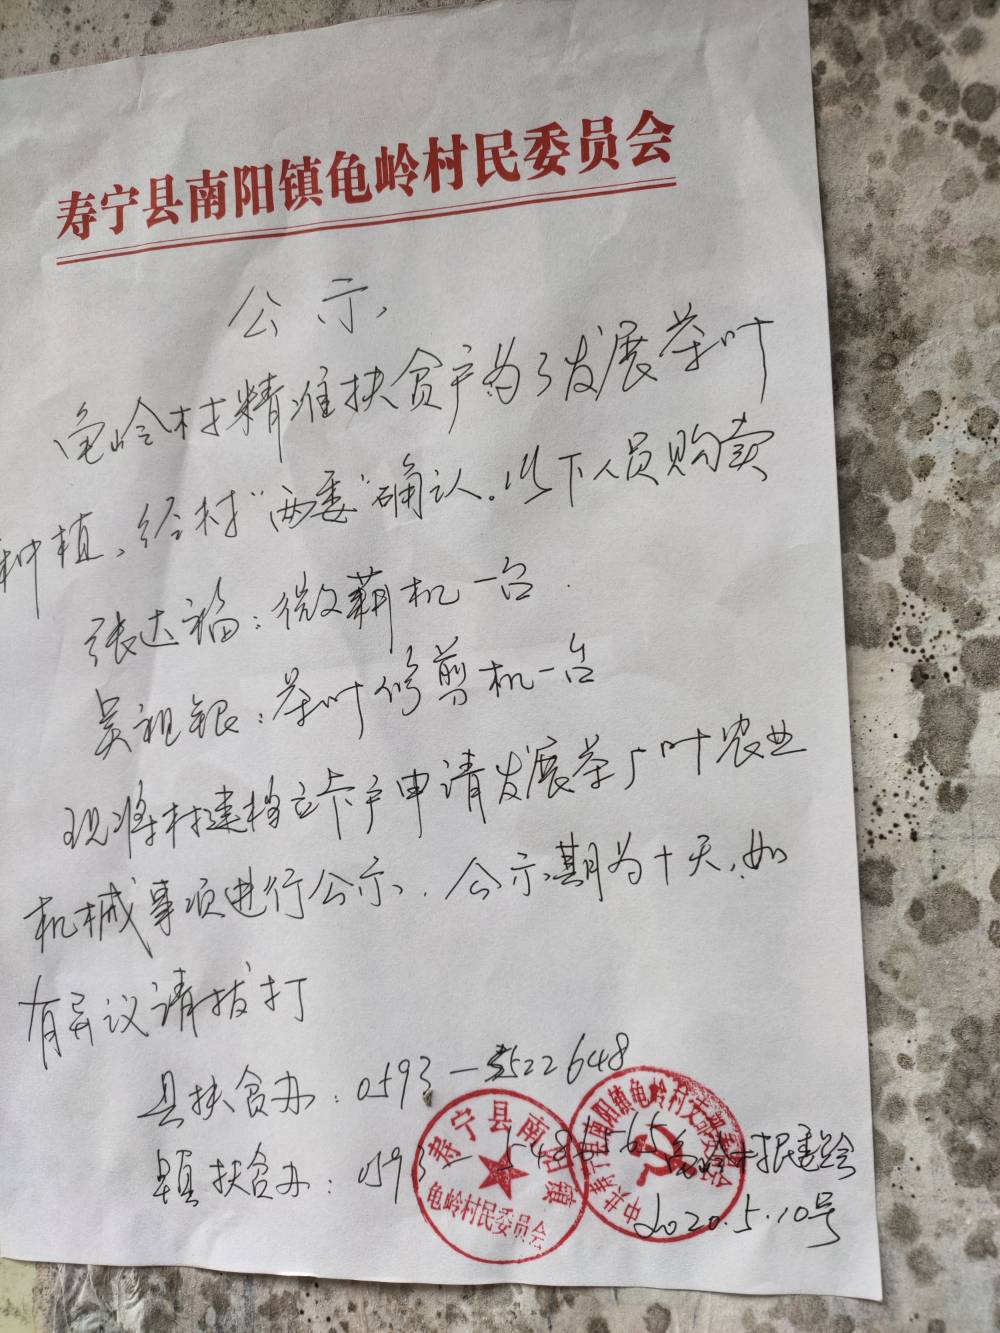 寿宁县南阳镇龟岭村民委员会
公示
龟岭村精准扶贫户为了发展茶叶
种植、经村“两委”确认。以下人员购卖
张达福：微耕机一台.
吴祖银：茶叶修剪机一台
现将村建档立卡户申请发展茶叶农业
机械事项进行公示、公示期为十天，如
有异议请拔打
县扶贫办：0593-5522648
镇扶贫办：0593-
龟岭村民委员会
2020.5.10号
寿宁县南阳镇
龟岭村民委员会
中共寿宁县南阳镇龟岭村支部委员会